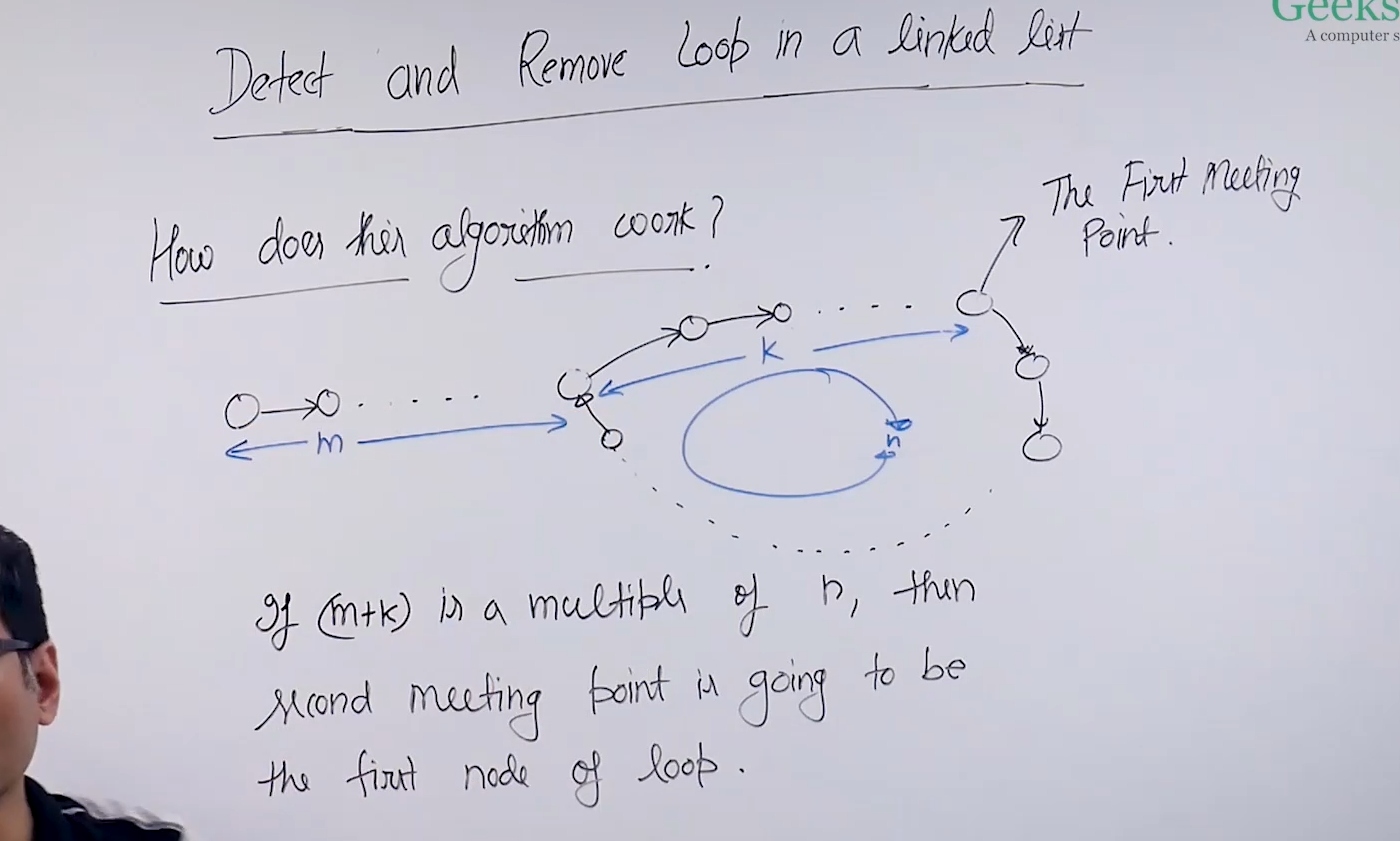 Geeks
A computer s
Detect and Remove Loop in a linked list
How does this algorithm work?
The First Meeting
Point.
k
m
n
If (m+k) is a multiple of n, then
second meeting point is going to be
the first node of loop.